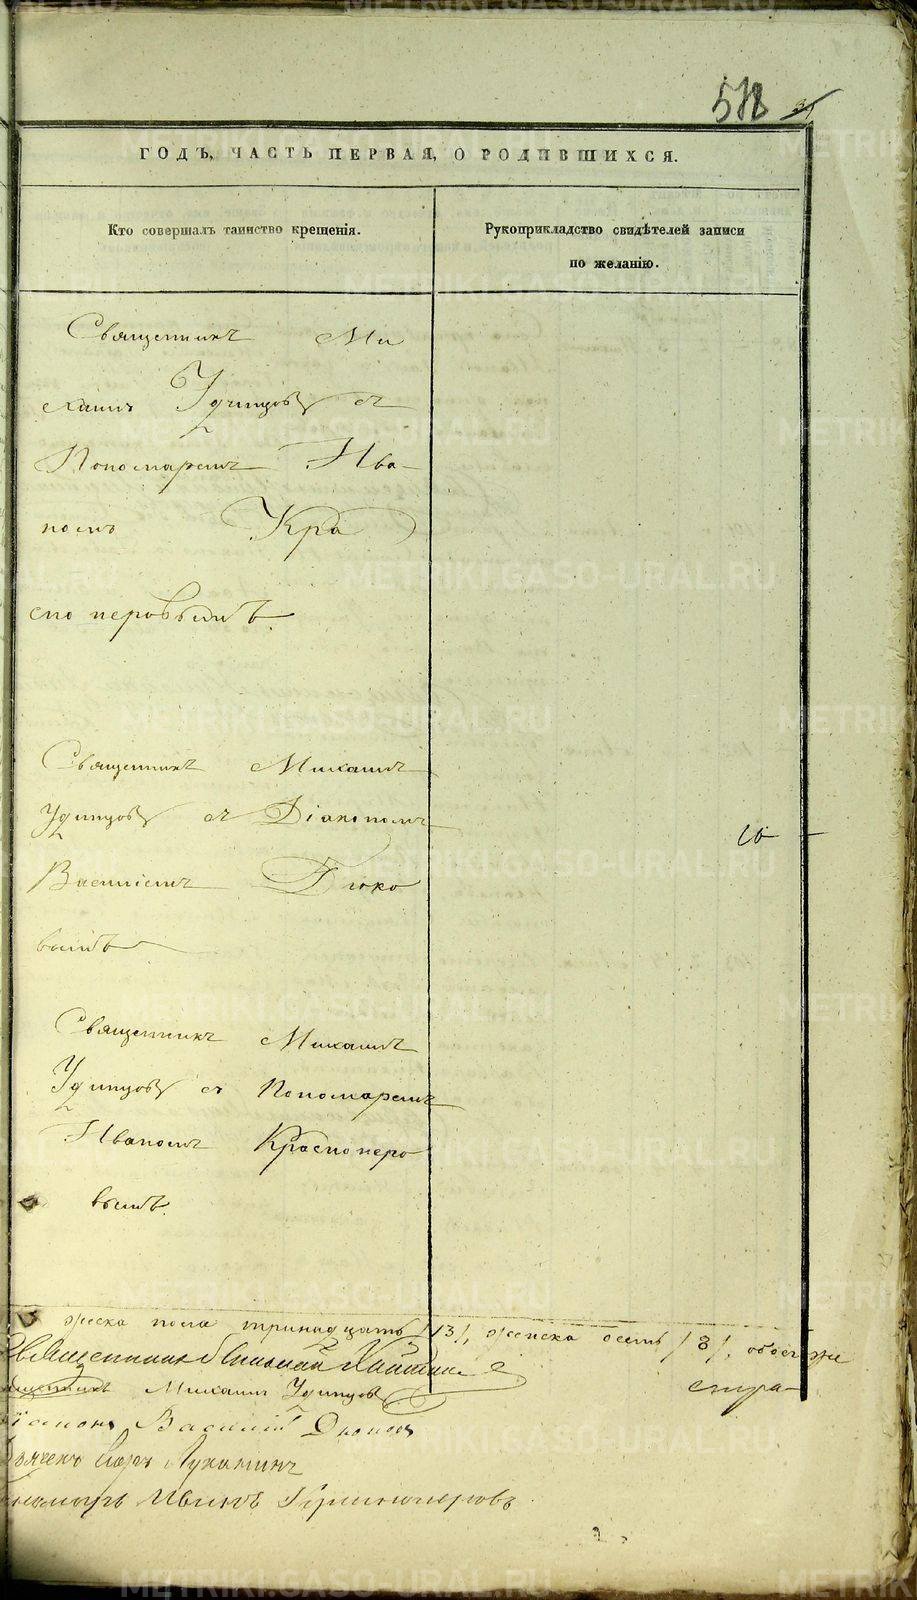 518
ГОДЪ, ЧАСТЬ ПЕРВАЯ, О РОДИВШИХСЯ.
Кто совершалъ таинство крещенія.
Рукоприкладство свидѣтелей записи
по желанію.
Священникъ Ми
хаилъ Удинцовъ съ
Пономаремъ Ива-
номъ Кра
сноперовымъ.
Священникъ Михаилъ
Удинцовъ съ Діакономъ
Василіемъ Дюко
вымъ
Священникъ Михаилъ
Удинцовъ съ Пономаремъ
Иваномъ Красноперо
вымъ.
жеска пола тринадцать /13/, женска осемь /8/, обоего же
Священникъ
Священникъ Михаилъ Удинцовъ
Діаконъ Василій Дюковъ
Лукалинъ
Пономарь Иванъ Красноперовъ
METRIKI.GASO-URAL.RU